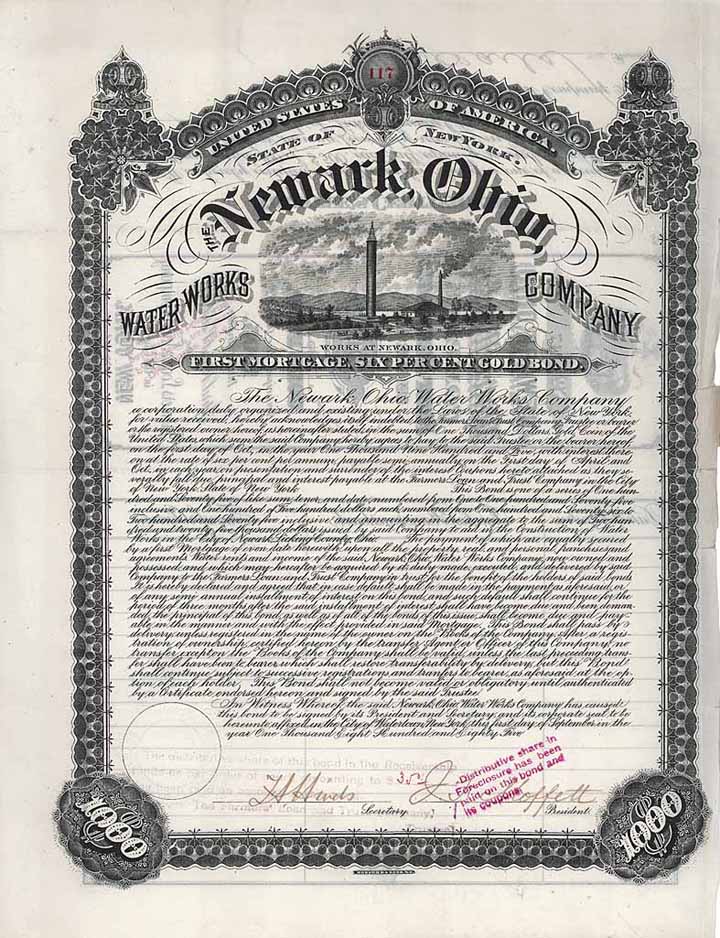 117
UNITED STATES OF AMERICA.
STATE OF NEW YORK.
THE Newark, Ohio,
WATER WORKS COMPANY
WORKS AT NEWARK, OHIO.
FIRST MORTGAGE, SIX PER CENT GOLD BOND.
The Newark, Ohio, Water Works Company
a corporation duly organized and existing under the Laws of the State of New York
for value received, hereby acknowledges itself indebted to the Farmers Loan and Trust Company, Trustee or bearer
or the registered owner hereof as hereinafter stated, in the sum of One Thousand Dollars Gold Coin of the
United States, which sum the said Company hereby agrees to pay to the said Trustee, or the bearer hereof
on the first day of Oct. in the year One Thousand Nine Hundred and Five, with interest thereon
at the rate of six per cent per annum, payable semi-annually on the First day of April and
Oct. in each year, on presentation and surrender of the interest Coupons hereto attached as they se-
verally fall due, principal and interest payable at the Farmers Loan and Trust Company in the City
of New York, State of New York This Bond is one of a series of One hun-
dred and Seventy five of like sum, tenor and date, numbered from One to One hundred and Seventy five
inclusive and One hundred of Five hundred dollars each, numbered from One hundred and Seventy six to
Two hundred and Seventy five inclusive and amounting in the aggregate to the sum of Two hun-
dred and twenty five Thousand dollars issued by the said Company to aid in the Construction of Water
Works in the City of Newark, Licking County, Ohio. The payment of which are equally secured
by a first Mortgage of even date herewith, upon all the property, real and personal, franchises and
agreements, Water rents and income of the said, Newark, Ohio, Water Works Company, now owned and
possessed, and which may hereafter be acquired by it, duly made, executed, and delivered by said
Company to the Farmers Loan and Trust Company in trust for the benefit of the holders of said bonds
It is hereby declared and agreed that in case default shall be made in the payment as aforesaid, of
any semi annual installment of interest on this bond, and such default shall continue for the
period of three months after the said installment of interest shall have become due and been deman-
ded, the principal of this bond, as well as of all of the bonds of this issue, shall become due and pay-
able in the manner and with the effect provided in said Mortgage. This Bond shall pass by
delivery unless registered in the name of the owner on the Books of the Company. After a regis-
tration of ownership, certified hereon by the transfer Agent or Officer of this Company, no
transfer except on the Books of the Company shall be valid, unless the last preceding trans-
fer shall have been to bearer which shall restore transferability by delivery, but this Bond
shall continue subject to successive registrations and transfers to bearer, as aforesaid at the op-
tion of each holder. This Bond shall not become valid or obligatory until authenticated
by a Certificate endorsed hereon and signed by the said Trustee
In Witness Whereof, the said Newark, Ohio, Water Works Company has caused
this bond to be signed by its President and Secretary, and its corporate seal to be
hereunto affixed, in the City of Watertown, New York, this first day of September in the
year One Thousand Eight Hundred and Eighty Five
Distributive share in
Foreclosure has been
paid on this bond and
its coupons
Secretary
President
$1000
$1000